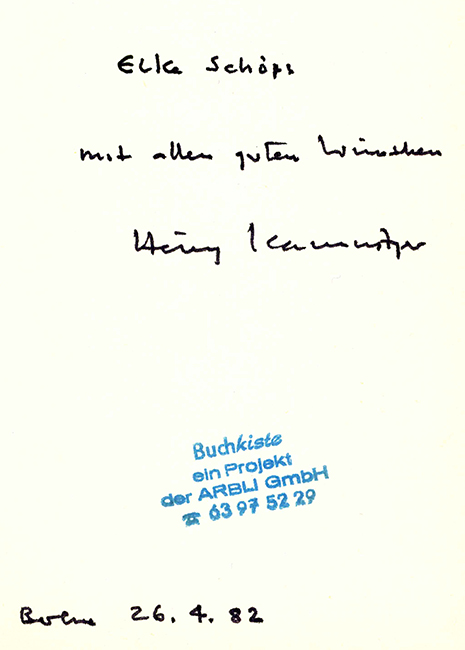 Elke Schöps
mit allen guten Wünschen
Heinz Kamnitzer
Buchkiste
ein Projekt
der ARBLI GmbH
☎ 63 97 52 29
Berlin 26. 4. 82